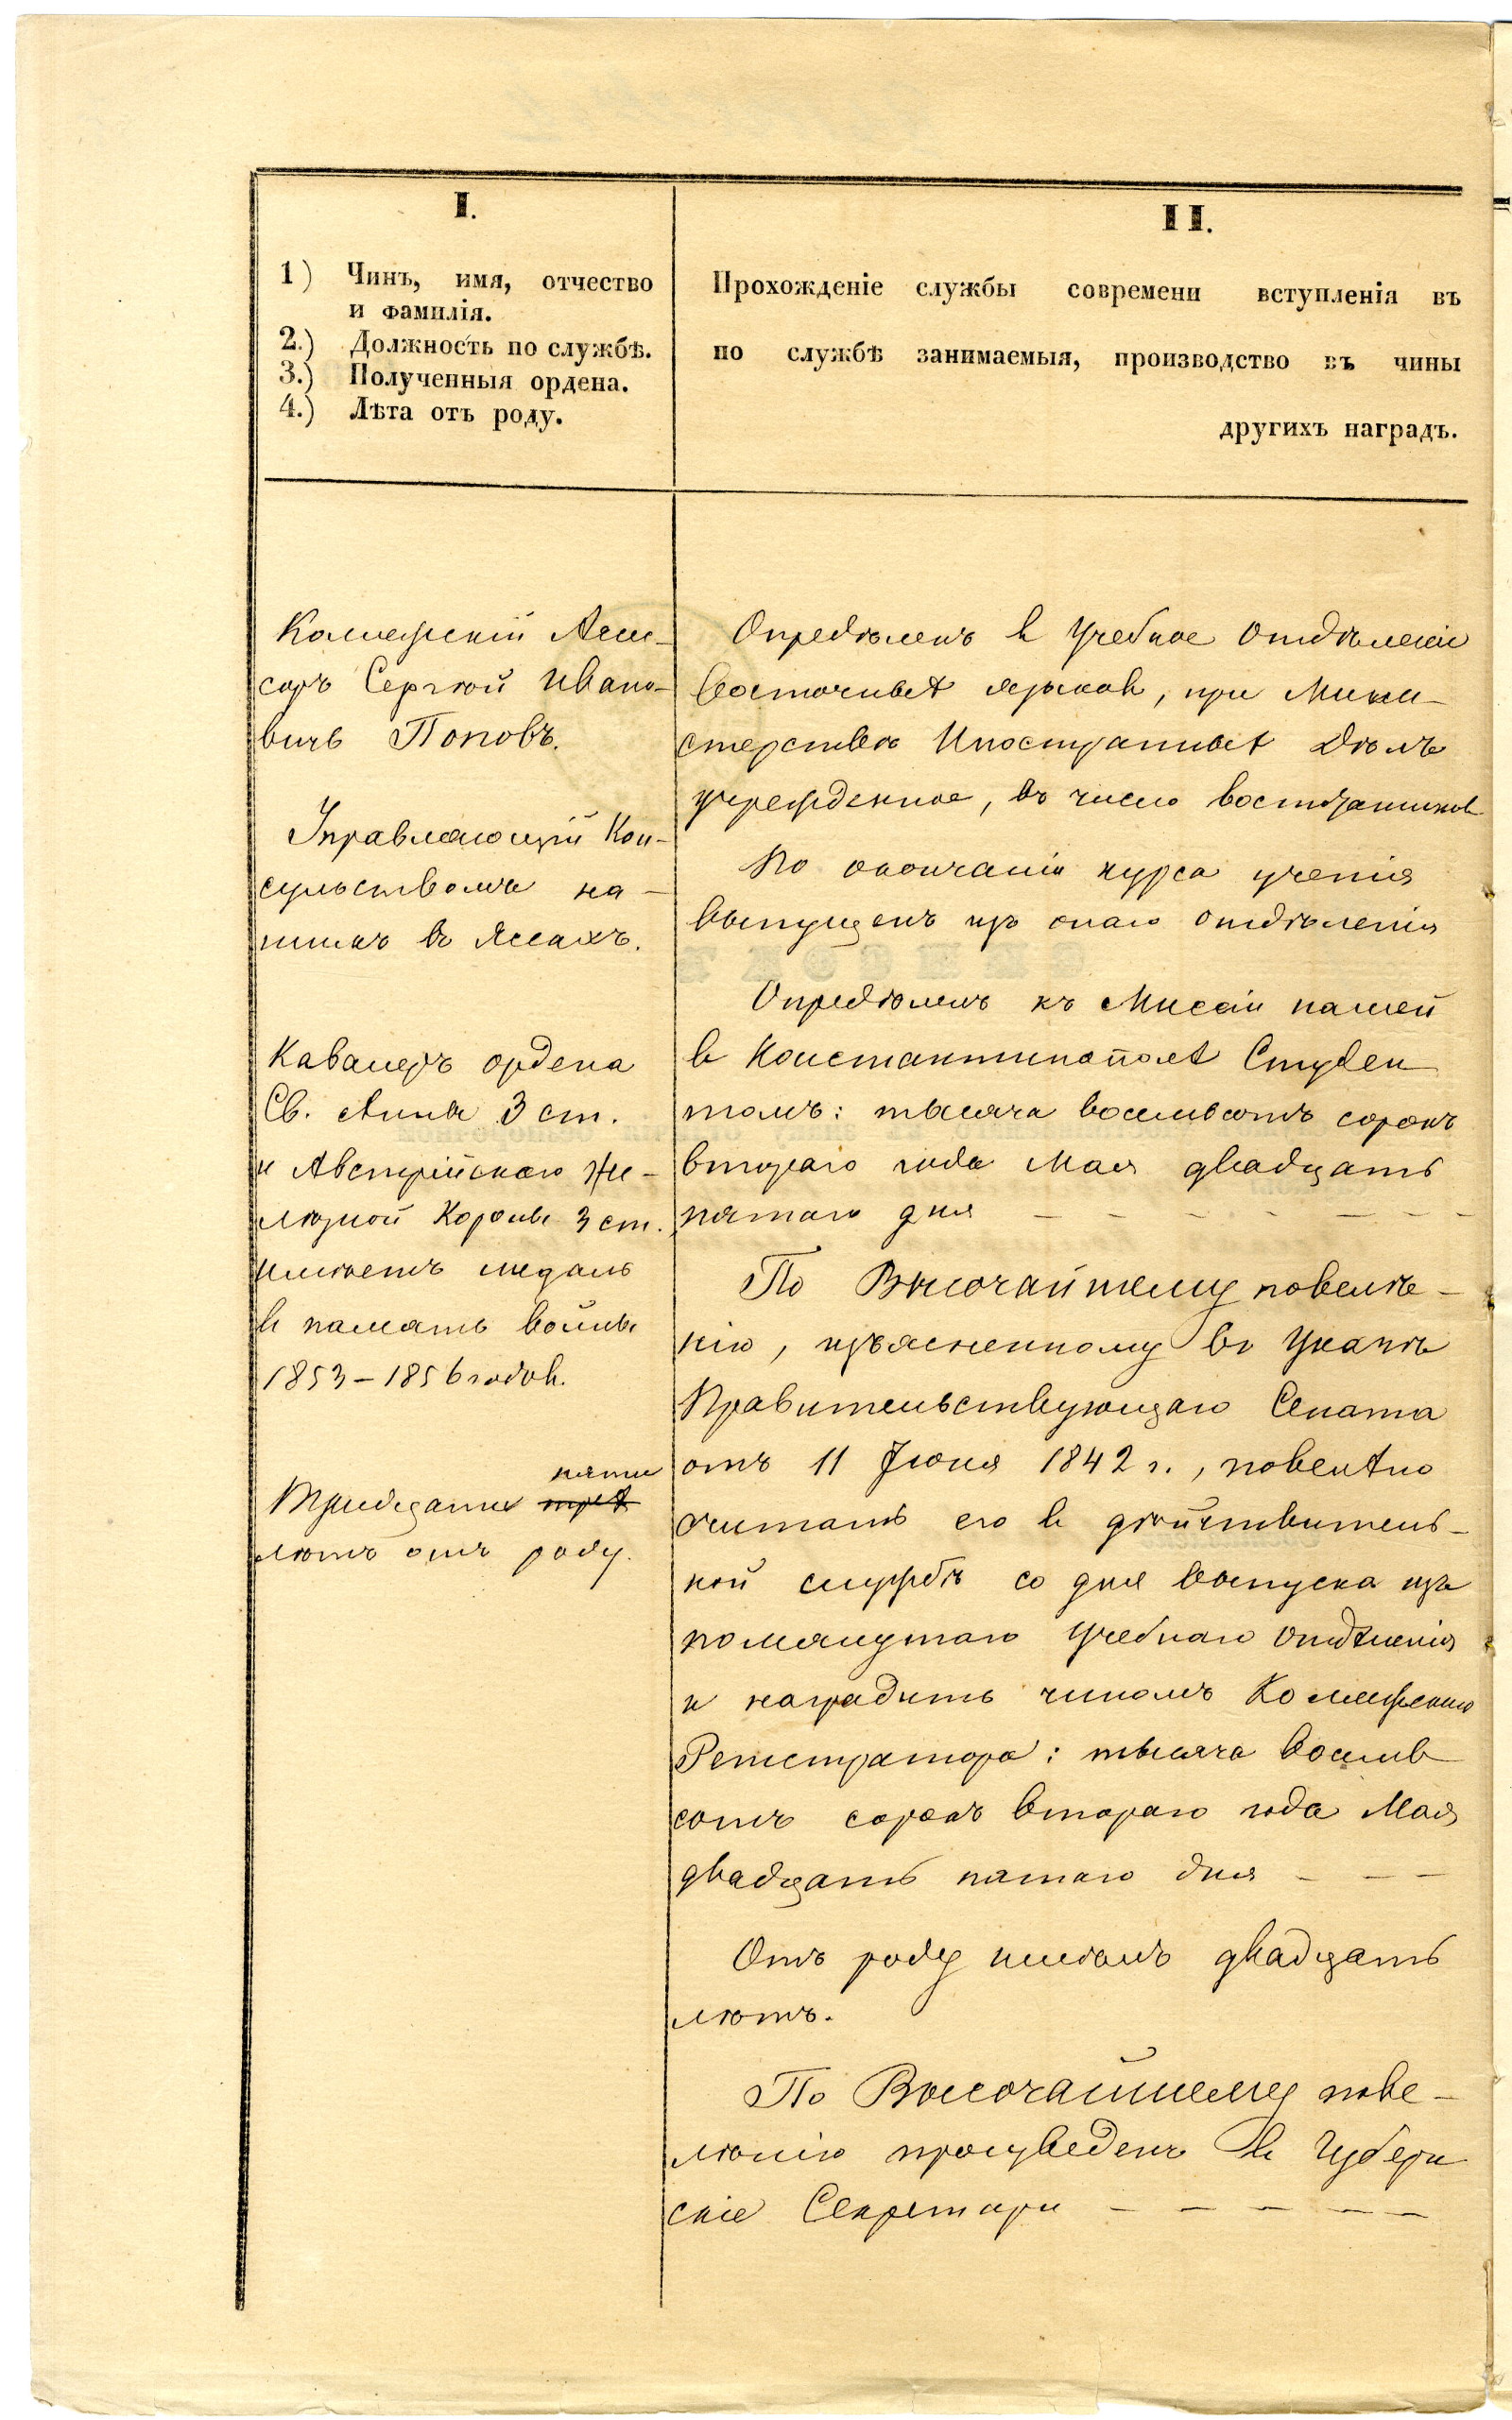 I.
1) Чинъ, имя, отчество
и фамилія.
2.) Должность по службѣ.
3.) Полученныя ордена.
4.) Лѣта отъ роду.
Коллежскій Ассе-
соръ Сергѣй Ивано-
вичъ Поповъ.
Управляющій Кон-
сульствомъ на-
шимъ въ Яссахъ.
Кавалеръ ордена
Св. Анны 3 ст.
и Австрійскаго Же-
лѣзной Короны 3 ст.
имѣетъ медаль
въ память войны
1853–1856 годовъ.
пяти
Тридцати трехъ
лѣтъ отъ роду.
II.
Прохожденіе службы современи вступленія въ
по службѣ занимаемыя, производство въ чины
другихъ наградъ.
Опредѣленъ въ Учебное Отдѣленіе
восточныхъ языковъ, при Мини-
стерствѣ Иностранныхъ Дѣлъ
учрежденное, въ число воспитанниковъ
По окончаніи курса ученія
выпущенъ изъ онаго Отдѣленія
Опредѣленъ къ Миссіи нашей
въ Константинополѣ Студен
томъ: тысяча восемьсотъ сорокъ
втораго года Мая двадцать
пятаго дня – – – – – – –
По Высочайшему повелѣ-
нію, изъясненному въ Указѣ
Правительствующаго Сената
отъ 11 Іюня 1842 г., повелѣно
считать его въ дѣйствитель-
ной службѣ со дня выпуска изъ
помянутаго Учебнаго Отдѣленія
и наградить чиномъ Коллежскаго
Регистратора: тысяча восемь
сотъ сорокъ втораго года Мая
двадцать пятаго дня – – –
Отъ роду имѣлъ двадцать
лѣтъ.
По Высочайшему пове-
лѣнію произведенъ въ Губерн
скіе Секретари – – – – –